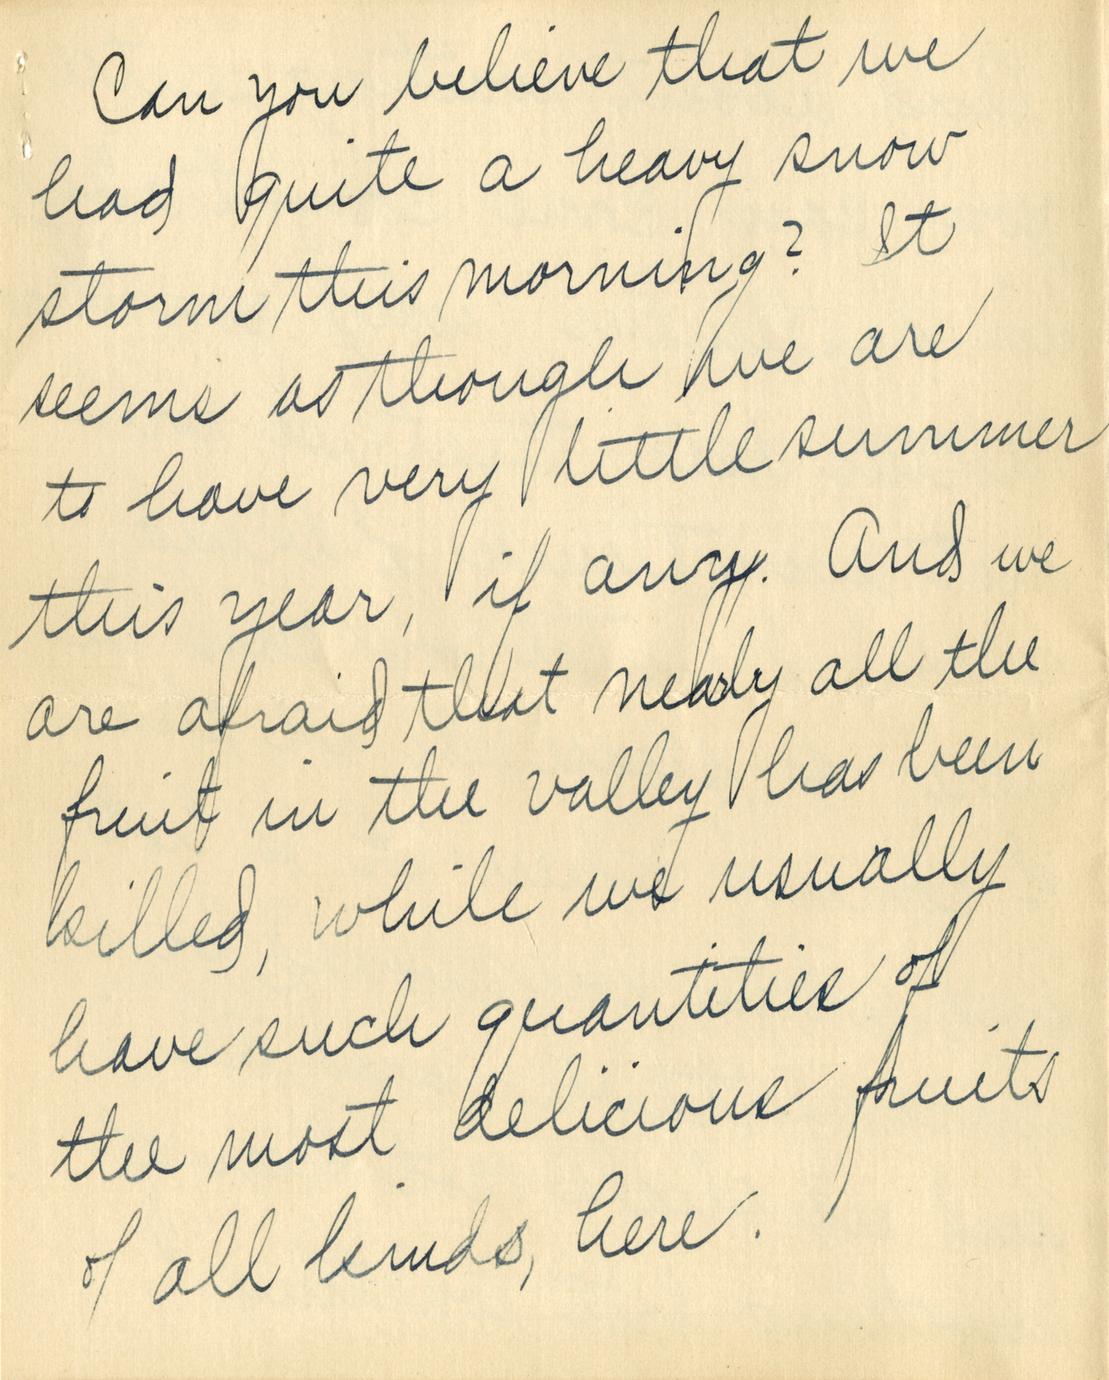 Can you believe that we
had quite a heavy snow
storm this morning? It
seems as though we are
to have very little summer
this year, if any. And we
are afraid that nearly all the
fruit in the valley has been
killed, while we usually
have such quantities of
the most delicious fruits
of all kinds, here.